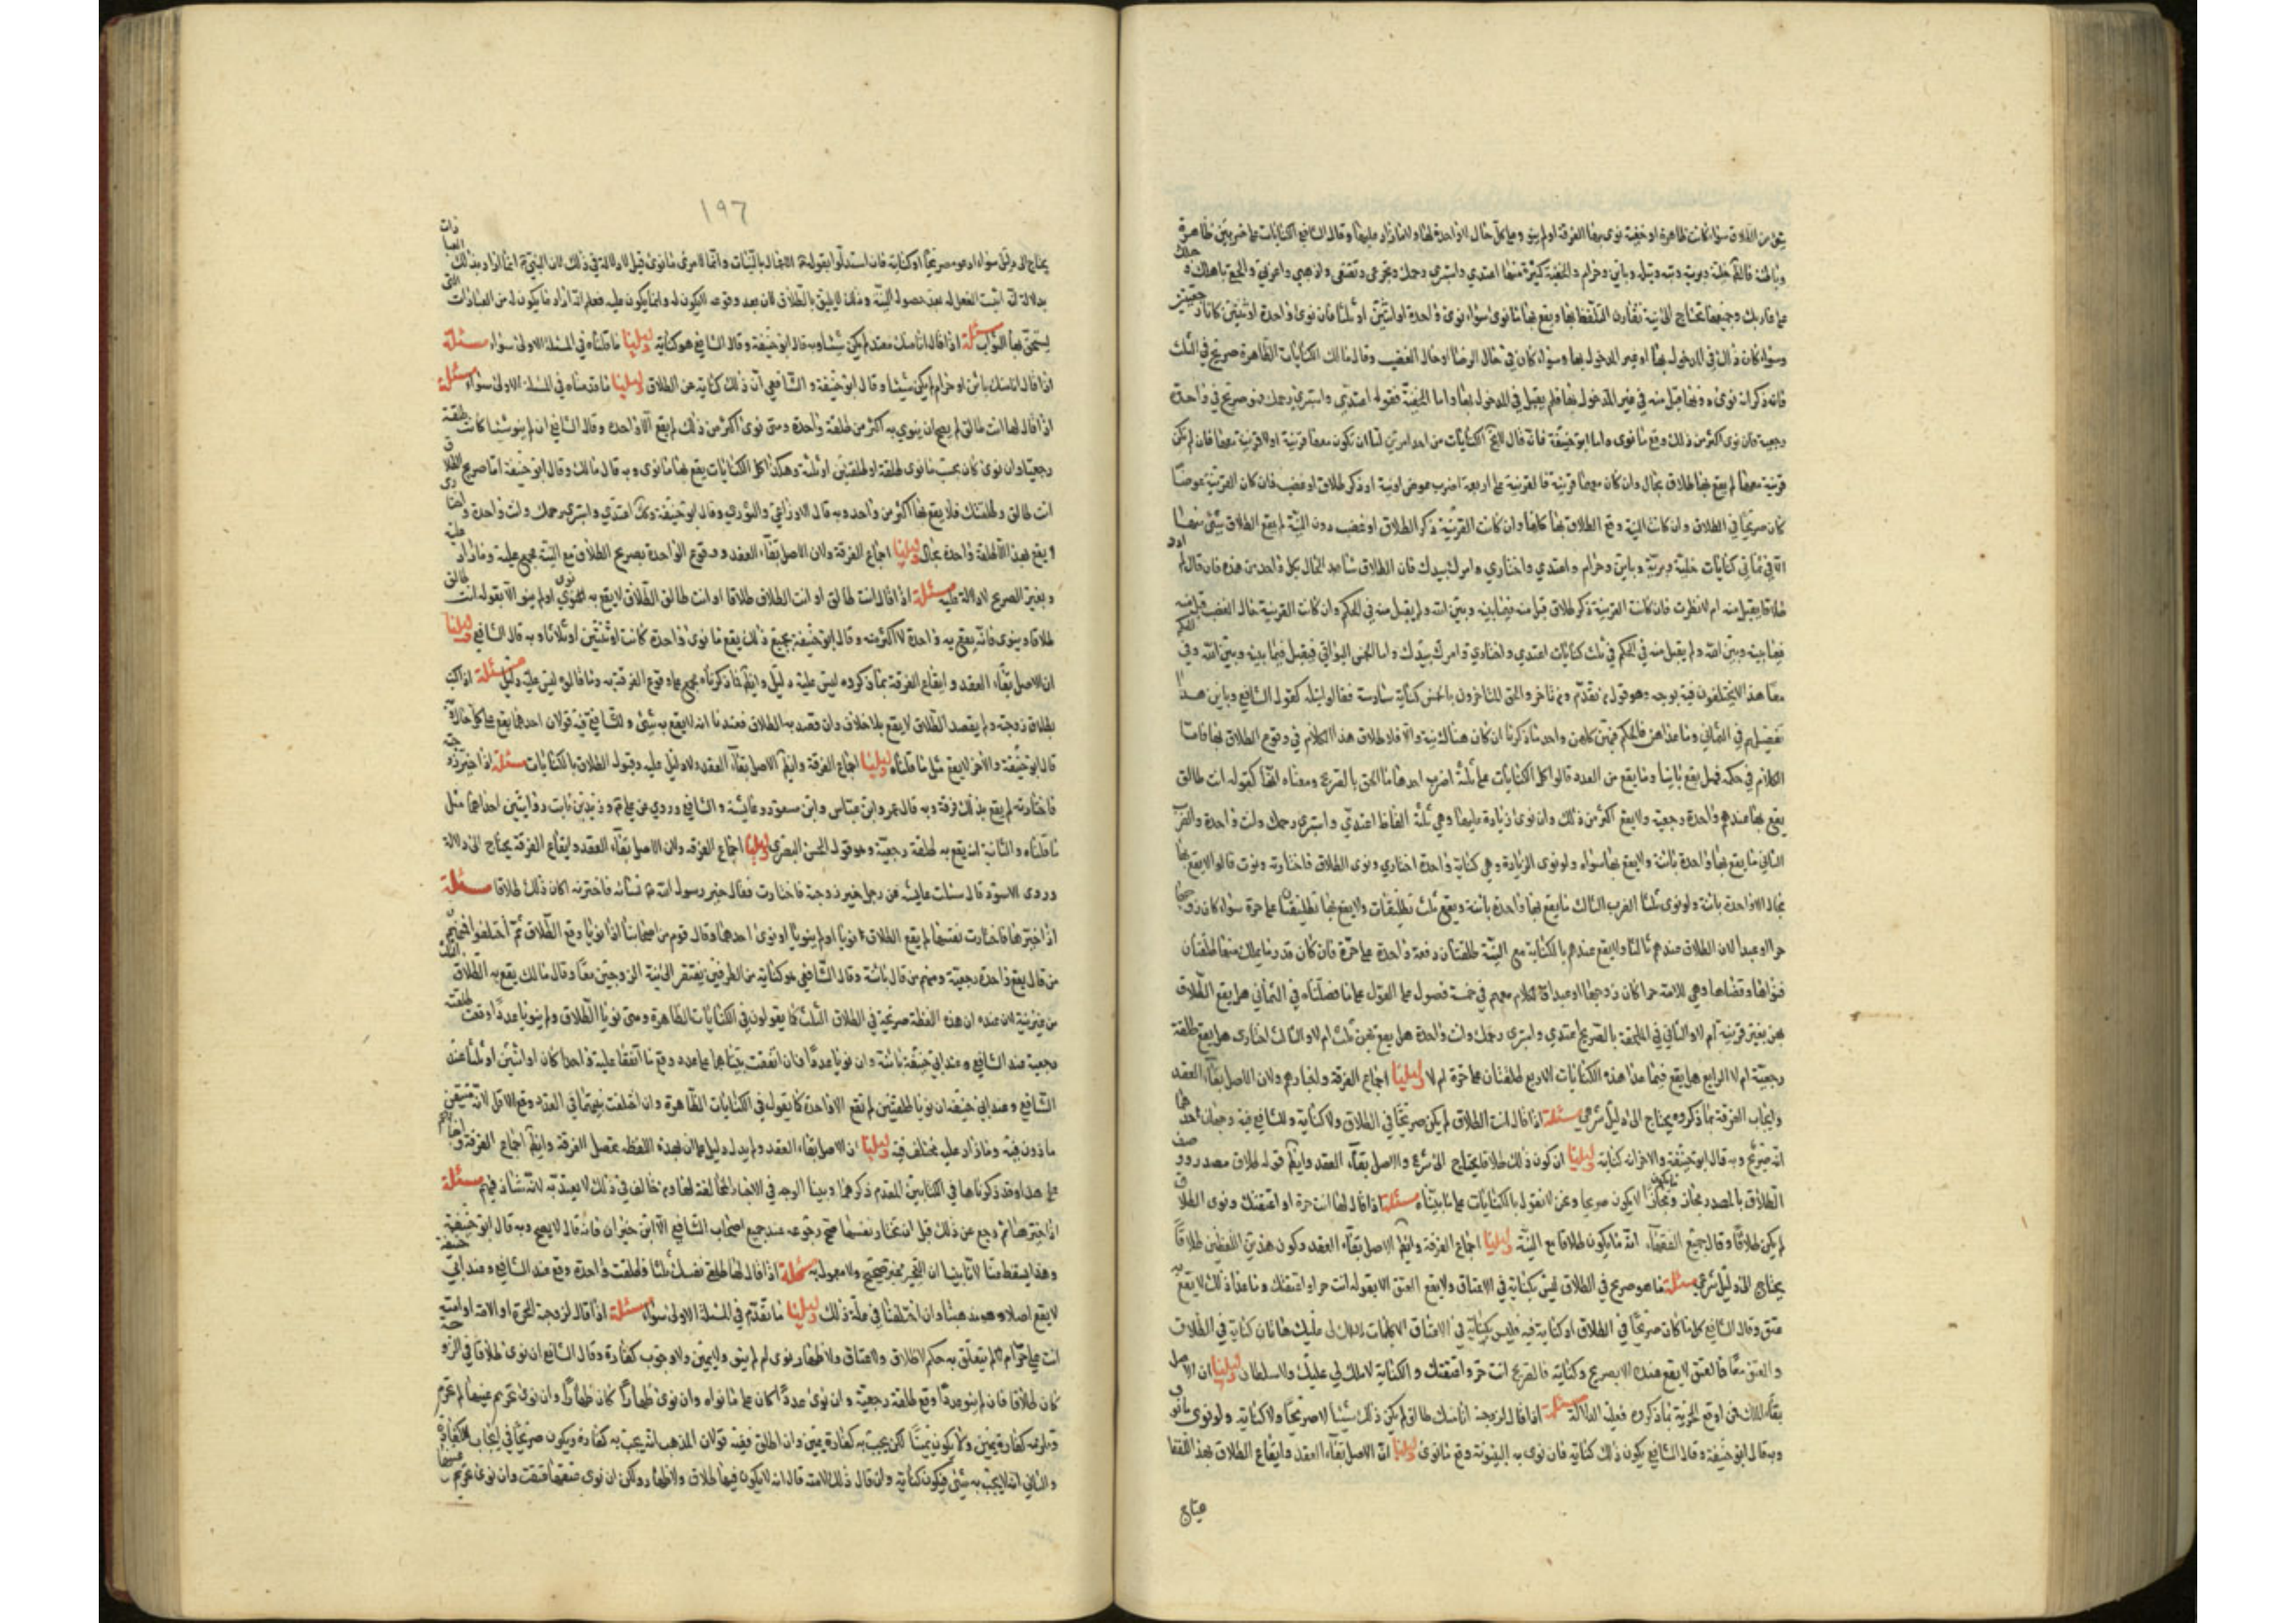 يقع من الطلاق سواء كانت ظاهرة او خفية نوى بها الفرقة او لم ينو وعلى كل حال الواحدة لها ولما زاد عليها وقال الشافعي الكنايات على ضربين ظاهرة
وقال مالك خلية وبرية وبتة وبتلة وباين وحرام والخفية كثيرة منها اعتدي واستبري رحمك وتجرعي وتقنعي واذهبي واعزبي والحقي باهلك وحبلك
على غاربك وجميعها تحتاج الى نية تقارن التلفظ بها ويقع بها ما نوى سواء نوى واحدة او اثنتين او ثلثا فان نوى واحدة او ثنتين كانتا رجعيتين
وسواء كان ذلك في المدخول بها او غير المدخول بها وسواء كان في حال الرضا او حال الغضب وقال مالك الكنايات الظاهرة صريح في الثلث
فان ذكر انه نوى دونها قبل منه في غير المدخول بها فلم يقبل في المدخول بها واما الخفية فقوله اعتدي واستبري رحمك فهو صريح في واحدة
رجعية فان نوى اكثر من ذلك وقع ما نوى واما ابو حنيفة فانه قال لا تخ الكنايات من احد امرين اما ان تكون معها قرينة او لا قرينة معها فان لم يكن
قرينة معها لم يقع بها طلاق بحال وان كان معها قرينة فالقرينة على اربعة اضرب عوض او نية او ذكر طلاق او غضب فان كان القرينة عوضا
كان صريحا في الطلاق وان كانت النية وقع الطلاق بها كلها وان كانت القرينة ذكر الطلاق او غضب دون النية لم يقع الطلاق بشئ منها
الا في ثماني كنايات خلية وبرية وباين وحرام واعتدي واختاري وامرك بيدك فان الطلاق شاهد الحال بكل واحد من هذه فان قال لم ارد
طلاقا يقبل منه ام لا نظرت فان كانت القرينة ذكر طلاق قبل منه فيما بينه وبين الله ولم يقبل منه في الحكم وان كانت القرينة حال الغضب قبل منه
فيما بينه وبين الله ولم يقبل منه في الحكم في ثلث كنايات اعتدي واختاري وامرك بيدك واما الخمس البواقي فيقبل فيما بينه وبين الله وفي الحكم
معا هذا لا يختلفون فيه بوجه وهو قول من تقدم ومن تاخر والحق المتاخرون بالخمس كناية سادسة فقالوا بتلة كقول الشافعي وباين هذا
تفصيلهم في الثماني وما عداهن فالحكم فيهن كلهن واحد ما ذكرنا ان كان هناك نية والا فلا طلاق هذا الكلام في وقوع الطلاق بها فاما
الكلام في حكمه فهل يقع باينا وما يقع من العدد قالوا كل الكنايات على ثلثة اضرب احدها ما الحق بالصريح ومعناه انها كقوله انت طالق
يقع بها عندهم واحدة رجعية ولا يقع اكثر من ذلك وان نوى زيادة عليها وهي ثلثة الفاظ اعتدي واستبري رحمك وانت واحدة والضرب
الثاني ما يقع بها واحدة باينة ولا يقع بها سواه ولو نوى الزيادة وهي كناية واحدة اختاري ونوى الطلاق فاختارت ونوت قالوا لا يقع بها
بحال الا واحدة باينة ولو نوى ثلثا الضرب الثالث ما يقع بها واحدة باينة ويقع ثلث تطليقات ولا يقع بها تطليقتان على حرة سواء كان زوجها
حرا او عبدا لان الطلاق عندهم بالنساء ولا يقع عندهم بالكناية مع النية طلقتان دفعة واحدة على حرة فان كان قدر ما يملك منها طلقتان
فنواها وقضاها وهي للامة حرا كان زوجها او عبدا فالكلام معهم في خمسة فصول على القول على ما فصلناه في الثماني هل يقع الطلاق
بهن بغير قرينة ام لا والثاني في الملحقة بالصريح اعتدي واستبري رحمك وانت واحدة هل يقع بهن ثلث ام لا والثالث اختاري هل يقع طلقة
رجعية ام لا الرابع هل يقع فيما عدا هذه الكنايات الاربع طلقتان على حرة ام لا دليلنا اجماع الفرقة واخبارهم ولان الاصل بقاء العقد
وايجاب الفرقة بما ذكروه يحتاج الى دليل شرعي مسئلة اذا قال انت الطلاق لم يكن صريحا في الطلاق ولا كناية وللشافعي فيه وجهان احدهما
انه صريح وبه قال ابو حنيفة والاخر انه كناية دليلنا ان كون ذلك طلاقا يحتاج الى شرع والاصل بقاء العقد وايضا قوله طلاق مصدر ووصف
الطلاق بالمصدر مجاز ومجازا لا يكون صريحا ونحن لا نقول بالكنايات على ما بيناه مسئلة اذا قال لها انت حرة او اعتقتك ونوى الطلاق
لم يكن طلاقا وقال جميع الفقهاء انه ما يكون طلاقا مع النية دليلنا اجماع الفرقة وايضا الاصل بقاء العقد وكون هذين اللفظين طلاقا
يحتاج الى دليل شرعي مسئلة ما هو صريح في الطلاق ليس بكناية في الاعتاق ولا يقع العتق الا بقوله انت حر او اعتقتك وما عدا ذلك لا يقع به
عتق وقال الشافعي كل ما كان صريحا في الطلاق او كناية فيه فليس بكناية في الاعتاق الا كلمات لا ملك لي عليك هاتان كناية في الطلاق
والعتق معا فالعتق لا يقع عندك الا بصريح وكناية فالصريح انت حر واعتقتك والكناية لا ملك لي عليك ولا سلطان دليلنا ان الاصل
بقاء الملك فمن اوقع الحرية بما ذكروه فعليه الدلالة مسئلة اذا قال لزوجته انا منك طالق لم يكن ذلك شيئا لا صريحا ولا كناية ولو نوى ما نوى
وبه قال ابو حنيفة وقال الشافعي يكون ذلك كناية فان نوى به البينونة وقع ما نوى دليلنا ان الاصل بقاء العقد وايقاع الطلاق بهذا اللفظ
يحتاج
١٩٦
يحتاج الى دليل سواء ادعوه صريحا او كناية فان استدلوا بقوله ع الاعمال بالنيات وانما لامرئ ما نوى قيل لا دلالة في ذلك لان النبي ع انما اراد بذلك العبادات
بدلالة انه اثبت الفعل له بعد حصول النية وذلك لا يليق بالطلاق لان بعد وقوعه لا يكون له وانما يكون عليه فعلم انه اراد ما يكون له من العبادات التي
يستحق بها الثواب مسئلة اذا قال انا منك معتد لم يكن شيئا وبه قال ابو حنيفة وقال الشافعي هو كناية دليلنا ما قلناه في المسئلة الاولى سواء مسئلة
اذا قال انا منك باين او حرام لم يكن شيئا وقال ابو حنيفة والشافعي ان ذلك كناية عن الطلاق دليلنا ما قدمناه في المسئلة الاولى سواء مسئلة
اذا قال لها انت طالق لم يصح ان ينوي به اكثر من طلقة واحدة ومتى نوى اكثر من ذلك لم يقع الا واحدة وقال الشافعي ان لم ينو شيئا كانت طلقة
رجعية وان نوى كان بحسب ما نوى طلقة او طلقتين او ثلثة وهكذا كل الكنايات يقع بها ما نوى وبه قال مالك وقال ابو حنيفة اما صريح الطلاق
انت طالق وطلقتك فلا يقع بها اكثر من واحد وبه قال الاوزاعي والثوري وقال ابو حنيفة وكك اعتدي واستبري رحمك وانت واحدة واختاري
لا يقع بهذا الا طلقة واحدة بحال دليلنا اجماع الفرقة ولان الاصل بقاء العقد ووقوع الواحدة بصريح الطلاق مع النية مجمع عليه وما زاد عليه
وبغير الصريح لا دلالة عليه مسئلة اذا قال انت طالق او انت الطلاق طلاقا او انت طالق الطلاق لا يقع به شئ نوى او لم ينو الا بقوله انت طالق
طلاقا وينوى فانه يقع به واحدة لا اكثر منه وقال ابو حنيفة بجميع ذلك يقع ما نوى واحدة كانت او ثنتين او ثلاثا وبه قال الشافعي دليلنا
ان الاصل بقاء العقد وايقاع الفرقة بما ذكروه ليس عليه دليل وايضا فما ذكرناه مجمع على وقوع الفرقة به وما قالوه ليس عليه دليل مسئلة اذا كتب
بطلاق زوجته ولم يقصد الطلاق لا يقع بلا خلاف وان قصد به الطلاق فعندنا انه لا يقع به شئ وللشافعي فيه قولان احدهما يقع على كل حال وبه
قال ابو حنيفة والاخر لا يقع مثل ما قلناه دليلنا اجماع الفرقة وايضا الاصل بقاء العقد ولا دليل عليه وقبول الطلاق بالكنايات مسئلة اذا خير زوجته
فاختارته لم يقع بذلك فرقة وبه قال عمر وابن عباس وابن مسعود وعائشة والشافعي وروي عن علي ع وزيد بن ثابت روايتين احداهما مثل
ما قلناه والثانية انه يقع به طلقة رجعية وهو قول الحسن البصري دليلنا اجماع الفرقة ولان الاصل بقاء العقد وايقاع الفرقة يحتاج الى دلالة
وروى الاسود قال سئلت عايشه عن رجل خير زوجته فاختارت فقال خير رسول الله ص نسائه فاخترنه اكان ذلك طلاقا مسئلة
اذا خيرها فاختارت نفسها لم يقع الطلاق نويا او لم ينويا او نوى احدهما وقال قوم من اصحابنا اذا نويا وقع الطلاق ثم اختلفوا فمنهم
من قال يقع واحدة رجعية ومنهم من قال باينة وقال الشافعي هو كناية من الطرفين يفتقر الى نية الزوجين معا وقال مالك يقع به الطلاق الثلث
من غير نية لان عنده ان هذه اللفظة صريحة في الطلاق الثلث كما يقولون في الكنايات الظاهرة ومتى نويا الطلاق ولم ينويا عددا وقعت طلقة
رجعية عند الشافعي وعند ابي حنيفة باينة وان نويا عددا فان اتفقت نيتاهما على عدد وقع ما اتفقا عليه واحدا كان او اثنين او ثلثا عند
الشافعي وعند ابي حنيفة ان نويا طلقتين لم تقع الا واحدة كما يقوله في الكنايات الظاهرة وان اختلفت نيتهما في العدد وقع الاقل لانه متيقن
ماذون فيه وما زاد عليه مختلف فيه دليلنا ان الاصل بقاء العقد ولم يدل دليل على ان بهذه اللفظة يحصل الفرقة وايضا اجماع الفرقة واخبارهم
على هذا وقد ذكرناها في الكتابين المقدم ذكرهما وبينا الوجه في الاخبار المخالفة لها ومن خالف في ذلك لا يعتد به لانه شاذ منهم مسئلة
اذا خيرها ثم رجع عن ذلك قبل ان تختار نفسها صح رجوعه عند جميع اصحاب الشافعي الا ابن خيران فانه قال لا يصح وبه قال ابو حنيفة
وهذا يسقط عنا لانا بينا ان التخيير غير صحيح ولا معمول به مسئلة اذا قال لها طلقي نفسك ثلثا فطلقت واحدة وقع عند الشافعي وعند ابي حنيفة
لا يقع اصلا وهو مذهبنا وان اختلفنا في علة ذلك دليلنا ما تقدم في المسئلة الاولى سواء مسئلة اذا قال لزوجته الحرة او الامة او امته
انت علي حرام لم يتعلق به حكم لا طلاق ولا عتاق ولا ظهار نوى ام لم ينو ولا يمين ولا وجوب كفارة وقال الشافعي ان نوى طلاقا في الزوجة
كان طلاقا فان لم ينو عددا وقع طلقة رجعية وان نوى عددا كان على ما نواه وان نوى ظهارا كان ظهارا وان نوى تحريم عينها لم تحرم
ويلزمه كفارة يمين ولا يكون يمينا لكن يجب به كفارة يمين وان اطلق ففيه قولان المذهب انه يجب به كفارة ويكون صريحا في ايجاب الكفارة
والثاني انه لا يجب به شئ فيكون كناية وان قال ذلك للامة قال انه لا يكون فيها طلاق ولا ظهار ولكن ان نوى عتقها عتقت وان نوى تحريم عينها